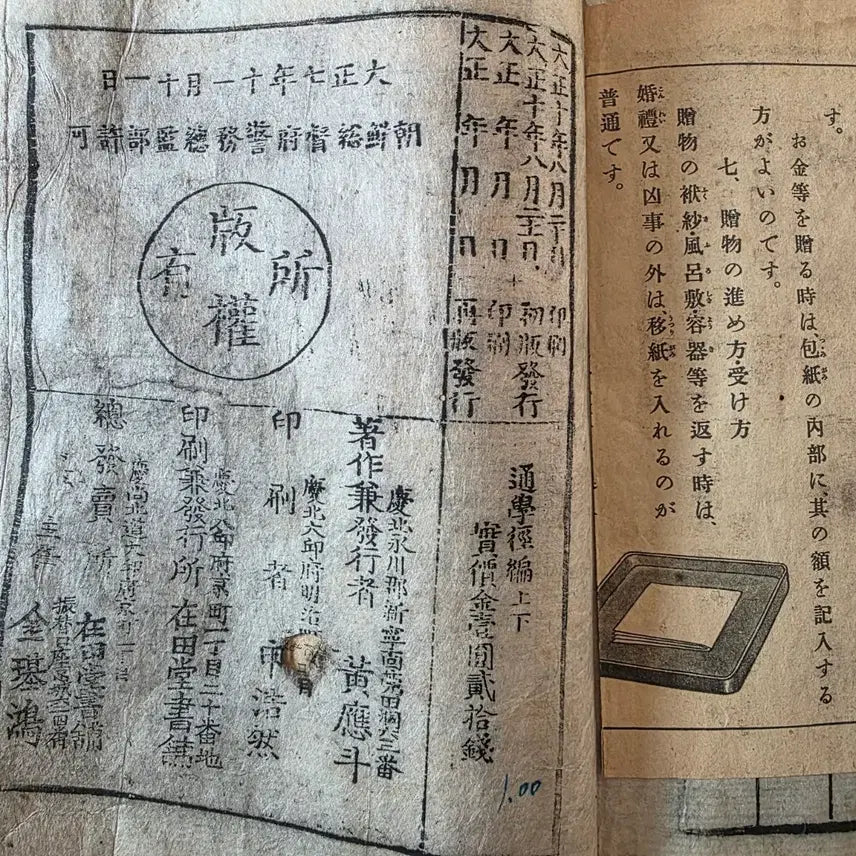 す。
お金等を贈る時は、包紙の內部に、其の額を記入する
方がよいのです。
七、贈物の進め方・受け方
贈物の袱紗・風呂敷・容器等を返す時は、
婚禮又は凶事の外は、移紙を入れるのが
普通です。
大正十年八月二十日 印刷
大正十年八月二十五日 初版發行
大正 年 月 日 印刷
大正 年 月 日 再版發行
大正七年十一月十一日
朝鮮總督府警務總監部許可
版權所有
通學徑編 上下
實價金壹圓貳拾錢
慶北永川郡新寧面 番
著作兼發行者 黃應斗
慶北大邱府明治町
印刷者 浩然
慶北大邱府京町一丁目二十番地
印刷兼發行所 在田堂書鋪
慶尙北道大邱府京町一丁目
總發賣所 在田堂書鋪
振替口座京城
金璂鴻
1.00